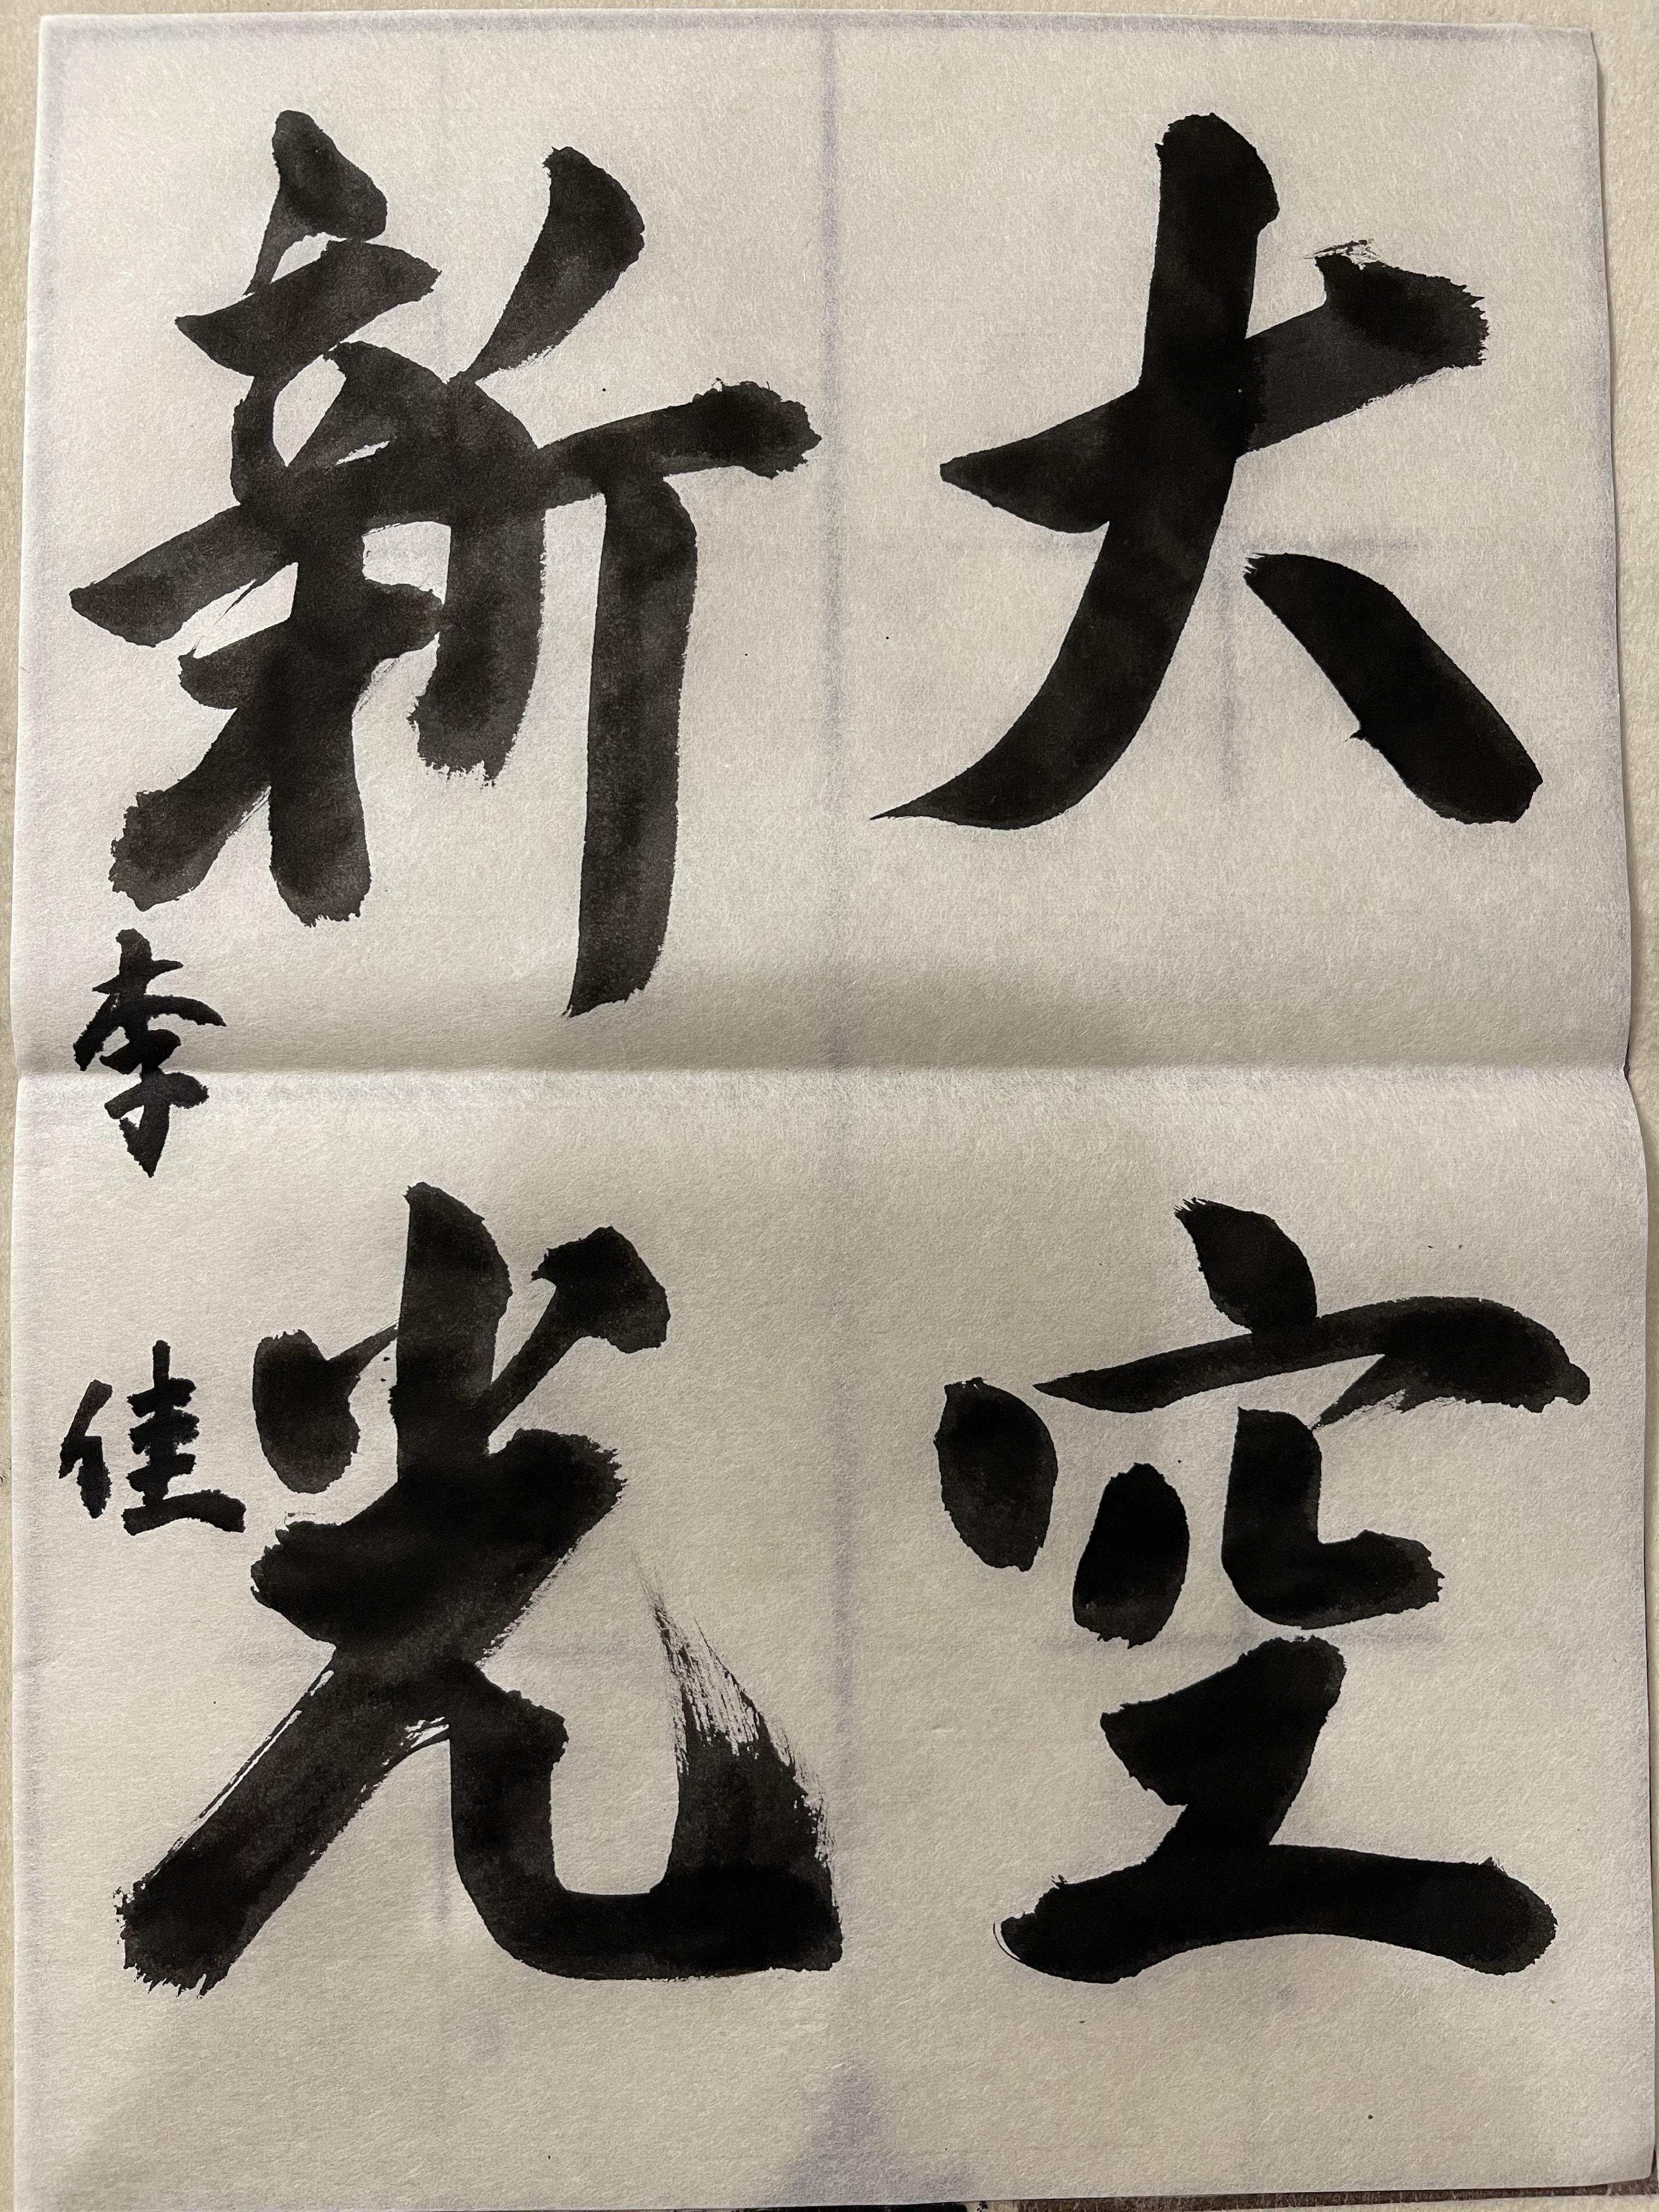 大空
新光
李佳